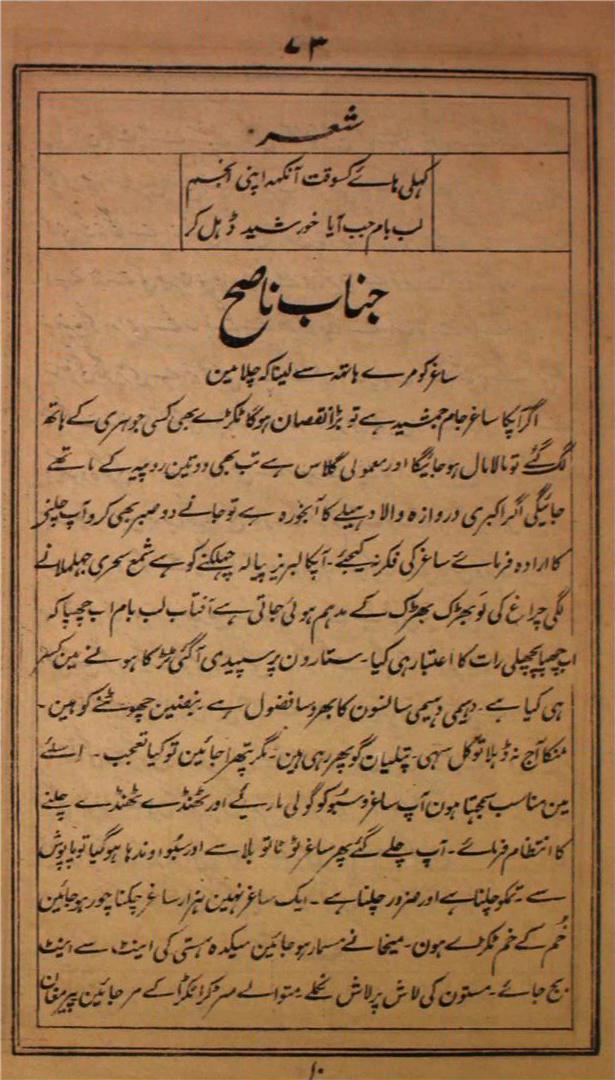 ۷۳
شعر
کھلی ہائے کسوقت آنکھہ اپنی انجم
لب بام جب آیا خورشید ڈہل کر
جناب ناصح
ساغر کو مرے ہاتھہ سے لینا کہ چلا مین
اگر آپکا ساغر جام جمشید ہے تو بڑا نقصان ہوگا ٹکڑے بھی کسی جوہری کے ہاتھ
لگ گئے تو مالامال ہوجائیگا اور معمولی گلاس ہے تب بھی دو تین روپیہ کے ماتھے
جائیگی اگر اکبری دروازہ والا دہیلے کا آبخورہ ہے تو جانے دو صبر بھی کرو آپ چلنے
کا ارادہ فرمائے ساغر کی فکر نہ کیجئے۔ آپکا لبریز پیالہ چہلکنے کو ہے شمع سحری جہلملانے
لگی چراغ کی لَو بھڑک بھڑک کے مدہم ہوئی جاتی ہے آفتاب لب بام اب چھپا کہ
اب چھپا پچھلی رات کا اعتبار ہی کیا۔ ستارون پر سپیدی آگئی تڑکا ہونے مین کسر
ہی کیا ہے۔ دہیمی دہیمی سانسون کا بھروسا فضول ہے نبضین چھوٹنے کو ہین۔
منکا آج نہ ڈہلا تو کل سہی۔ پتلیان گو پھر رہی ہین۔ مگر پتھرا جائین تو کیا تعجب۔ اسلئے
مین مناسب سمجہتا ہون آپ ساغر و سَبُو کو گولی مارئیے اور ٹھنڈے ٹھنڈے چلنے
کا انتظام فرمائے۔ آپ چلے گئے پھر ساغر ٹوٹا تو بلا سے اور سبُو اوندہا ہوگیا تو پاپوش
سے۔ تمکو چلنا ہے اور ضرور چلنا ہے۔ ایک ساغر نہین ہزار ساغر چکنا چور ہوجائین
خُم کے خم ٹکڑے ہون۔ میخانے مسمار ہوجائین میکدہ ہستی کی اینٹ سے اینٹ
بج جائے۔ مستون کی لاش پر لاش نکلے۔ متوالے سر ٹکرا ٹکرا کے مر جائین پیر مغان
۱۰